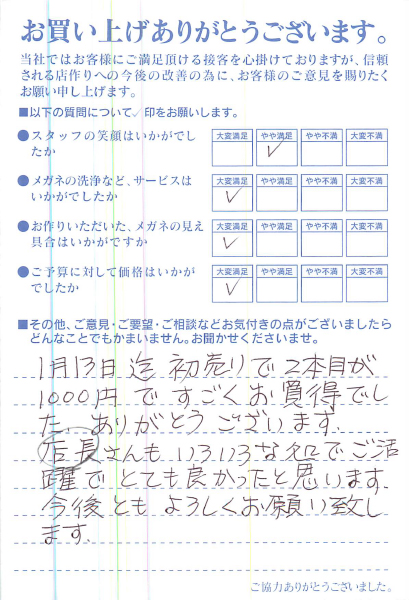 お買い上げありがとうございます。
当社ではお客様にご満足頂ける接客を心掛けておりますが、信頼
される店作りへの今後の改善の為に、お客様のご意見を賜りたく
お願い申し上げます。
■以下の質問について✓印をお願いします。
●スタッフの笑顔はいかがでし
たか
大変満足 やや満足 やや不満 大変不満
✓
●メガネの洗浄など、サービスは
いかがでしたか
大変満足 やや満足 やや不満 大変不満
✓
●お作りいただいた、メガネの見え
具合はいかがですか
大変満足 やや満足 やや不満 大変不満
✓
●ご予算に対して価格はいかが
でしたか
大変満足 やや満足 やや不満 大変不満
✓
■その他、ご意見・ご要望・ご相談などお気付きの点がございましたら
どんなことでもかまいません。お聞かせくださいませ。
1月13日迄初売りで2本目が
1000円ですごくお買得でし
た.ありがとうございます.
店長さんもいろいろな処でご活
躍でとても良かったと思います.
今後ともよろしくお願い致し
ます.
ご協力ありがとうございました。